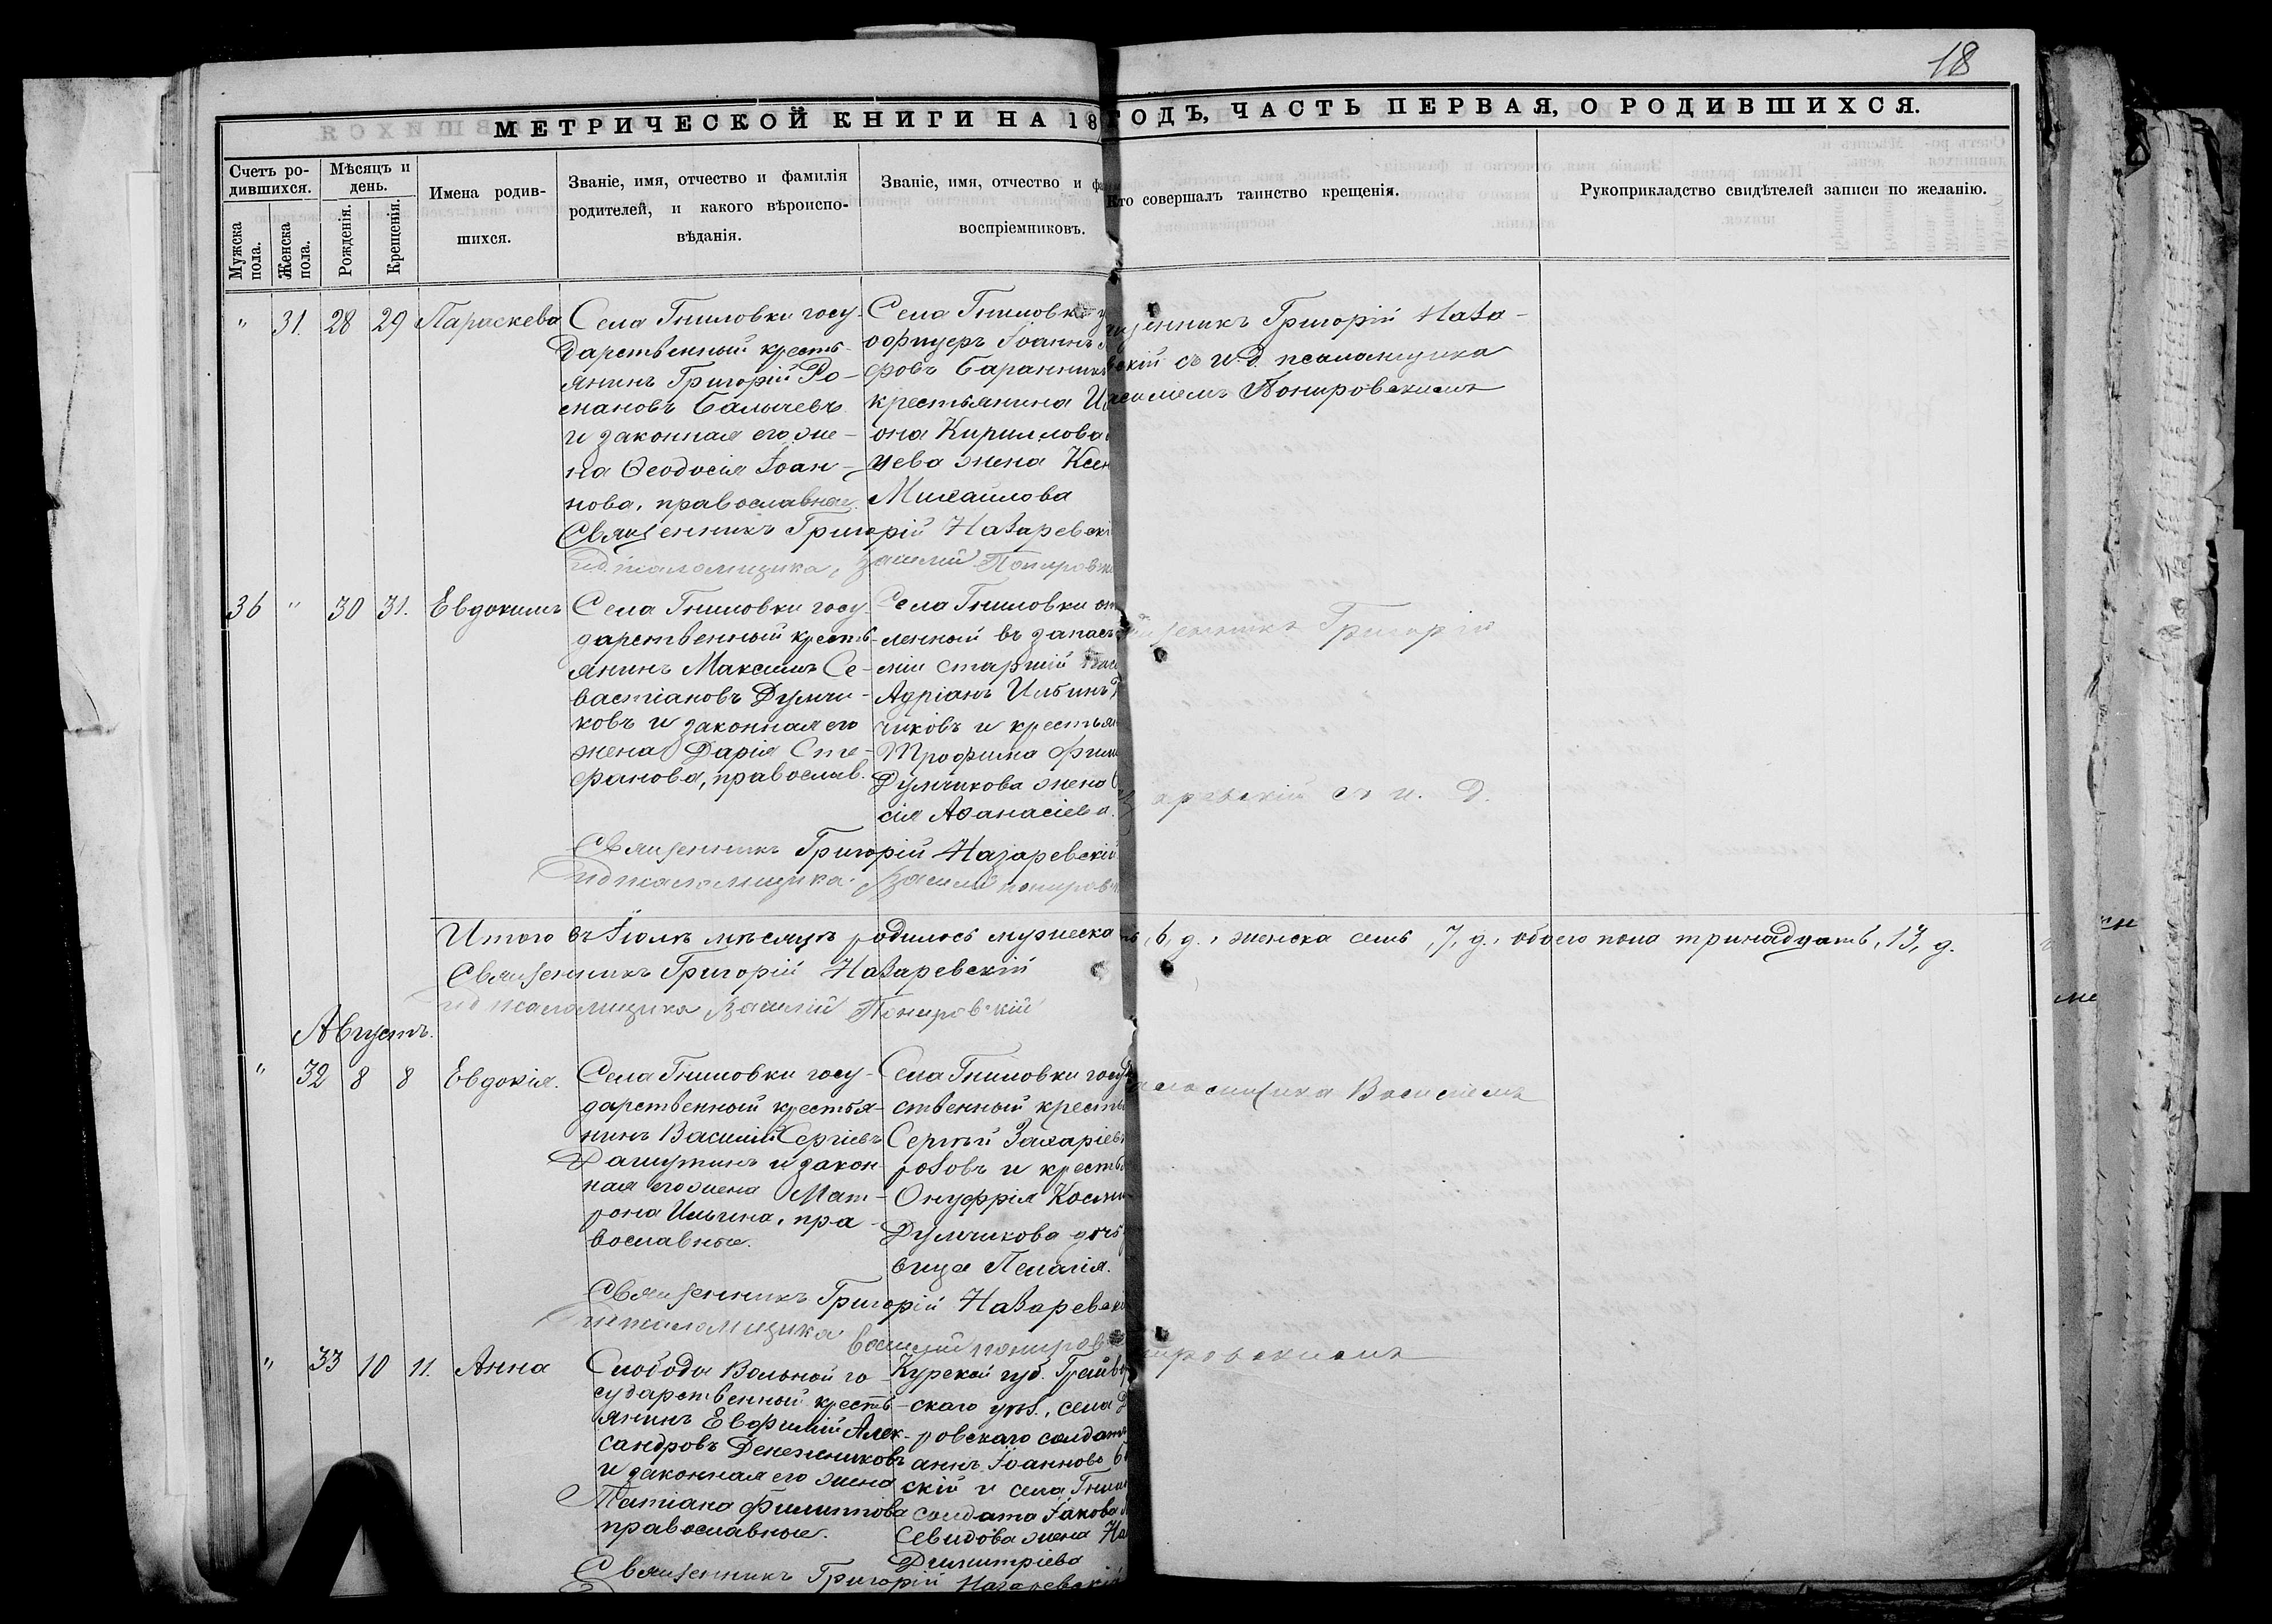 18
МЕТРИЧЕСКОЙ КНИГИ НА 18
ГОДЪ, ЧАСТЬ ПЕРВАЯ, О РОДИВШИХСЯ.
Счетъ ро-
дившихся.
Мужска
пола.
Женска
пола.
Мѣсяцъ и
день.
Рожденія.
Крещенія.
Имена родив-
шихся.
Званіе, имя, отчество и фамилія
родителей, и какого вѣроиспо-
вѣданія.
Званіе, имя, отчество и
воспріемниковъ.
Кто совершалъ таинство крещенія.
Рукоприкладство свидѣтелей записи по желанію.
" 31. 28 29 Параскева
Села Гниловки госу-
дарственный кресть-
янинъ Григорій Ро-
мановъ Балычевъ
и законная его же-
на Ѳеодосія Іоан-
нова, православные.
Села Гниловки
офицеръ Іоаннъ
еровъ Баранник
крестьянина
она Кириллова
чева жена Ксен
Михаилова
Григорій Наза-
скій съ и. д. псаломщика
Понировскимъ
Священникъ Григорій Назаревскі
и д псаломщика, Василій Понировски
36 " 30 31. Евдокимъ
Села Гниловки госу-
дарственный кресть-
янинъ Максимъ Се-
вастіановъ Думчи-
ковъ и законная его
жена Дарія Сте-
фанова, православ.
Села Гниловки
ленный въ запас
міи старшій
Адріанъ Ильинъ
чиковъ и крестья
Трофима Фили
Думчикова жена
сія Аѳанасіева.
Григорій
аревскій съ и. д.
Священникъ Григорій Назаревскій
и д псаломщика Василій Понировс
Итого въ Іюлѣ мѣсяцѣ родилось мужеска
, 6, д., женска семь, 7, д., обоего пола тринадцать, 13, д.
Священникъ Григорій Назаревскій
и д псаломщика Василій Понировскій
Августъ.
" 32 8 8 Евдокія.
Села Гниловки госу-
дарственный крестья-
нинъ Василій Сергіевъ
Дашутинъ и закон-
ная его жена Мат-
рона Ильина, пра-
вославные.
Села Гниловки госу
ственный кресть
Сергѣй Захаріев
розовъ и кресть
Онуфрія Косми
Думчикова дочь
вица Пелагія.
аломщика Василіемъ
Священникъ Григорій Назаревски
и д псаломщика Василій Пониров
" 33 10 11. Анна
Слободы Вольной го-
сударственный кресть-
янинъ Евфимій Алек-
сандровъ Денежниковъ
и законная его жена
Татіана Филиппова
православные.
Курской губ. Грайво
скаго уѣз., села
ровскаго солдат
аннъ Іоанновъ
скій и села Гнил
солдата Іакова
Севидова жена На
Димитріева
нировскимъ
Священникъ Григорій Назаревскій